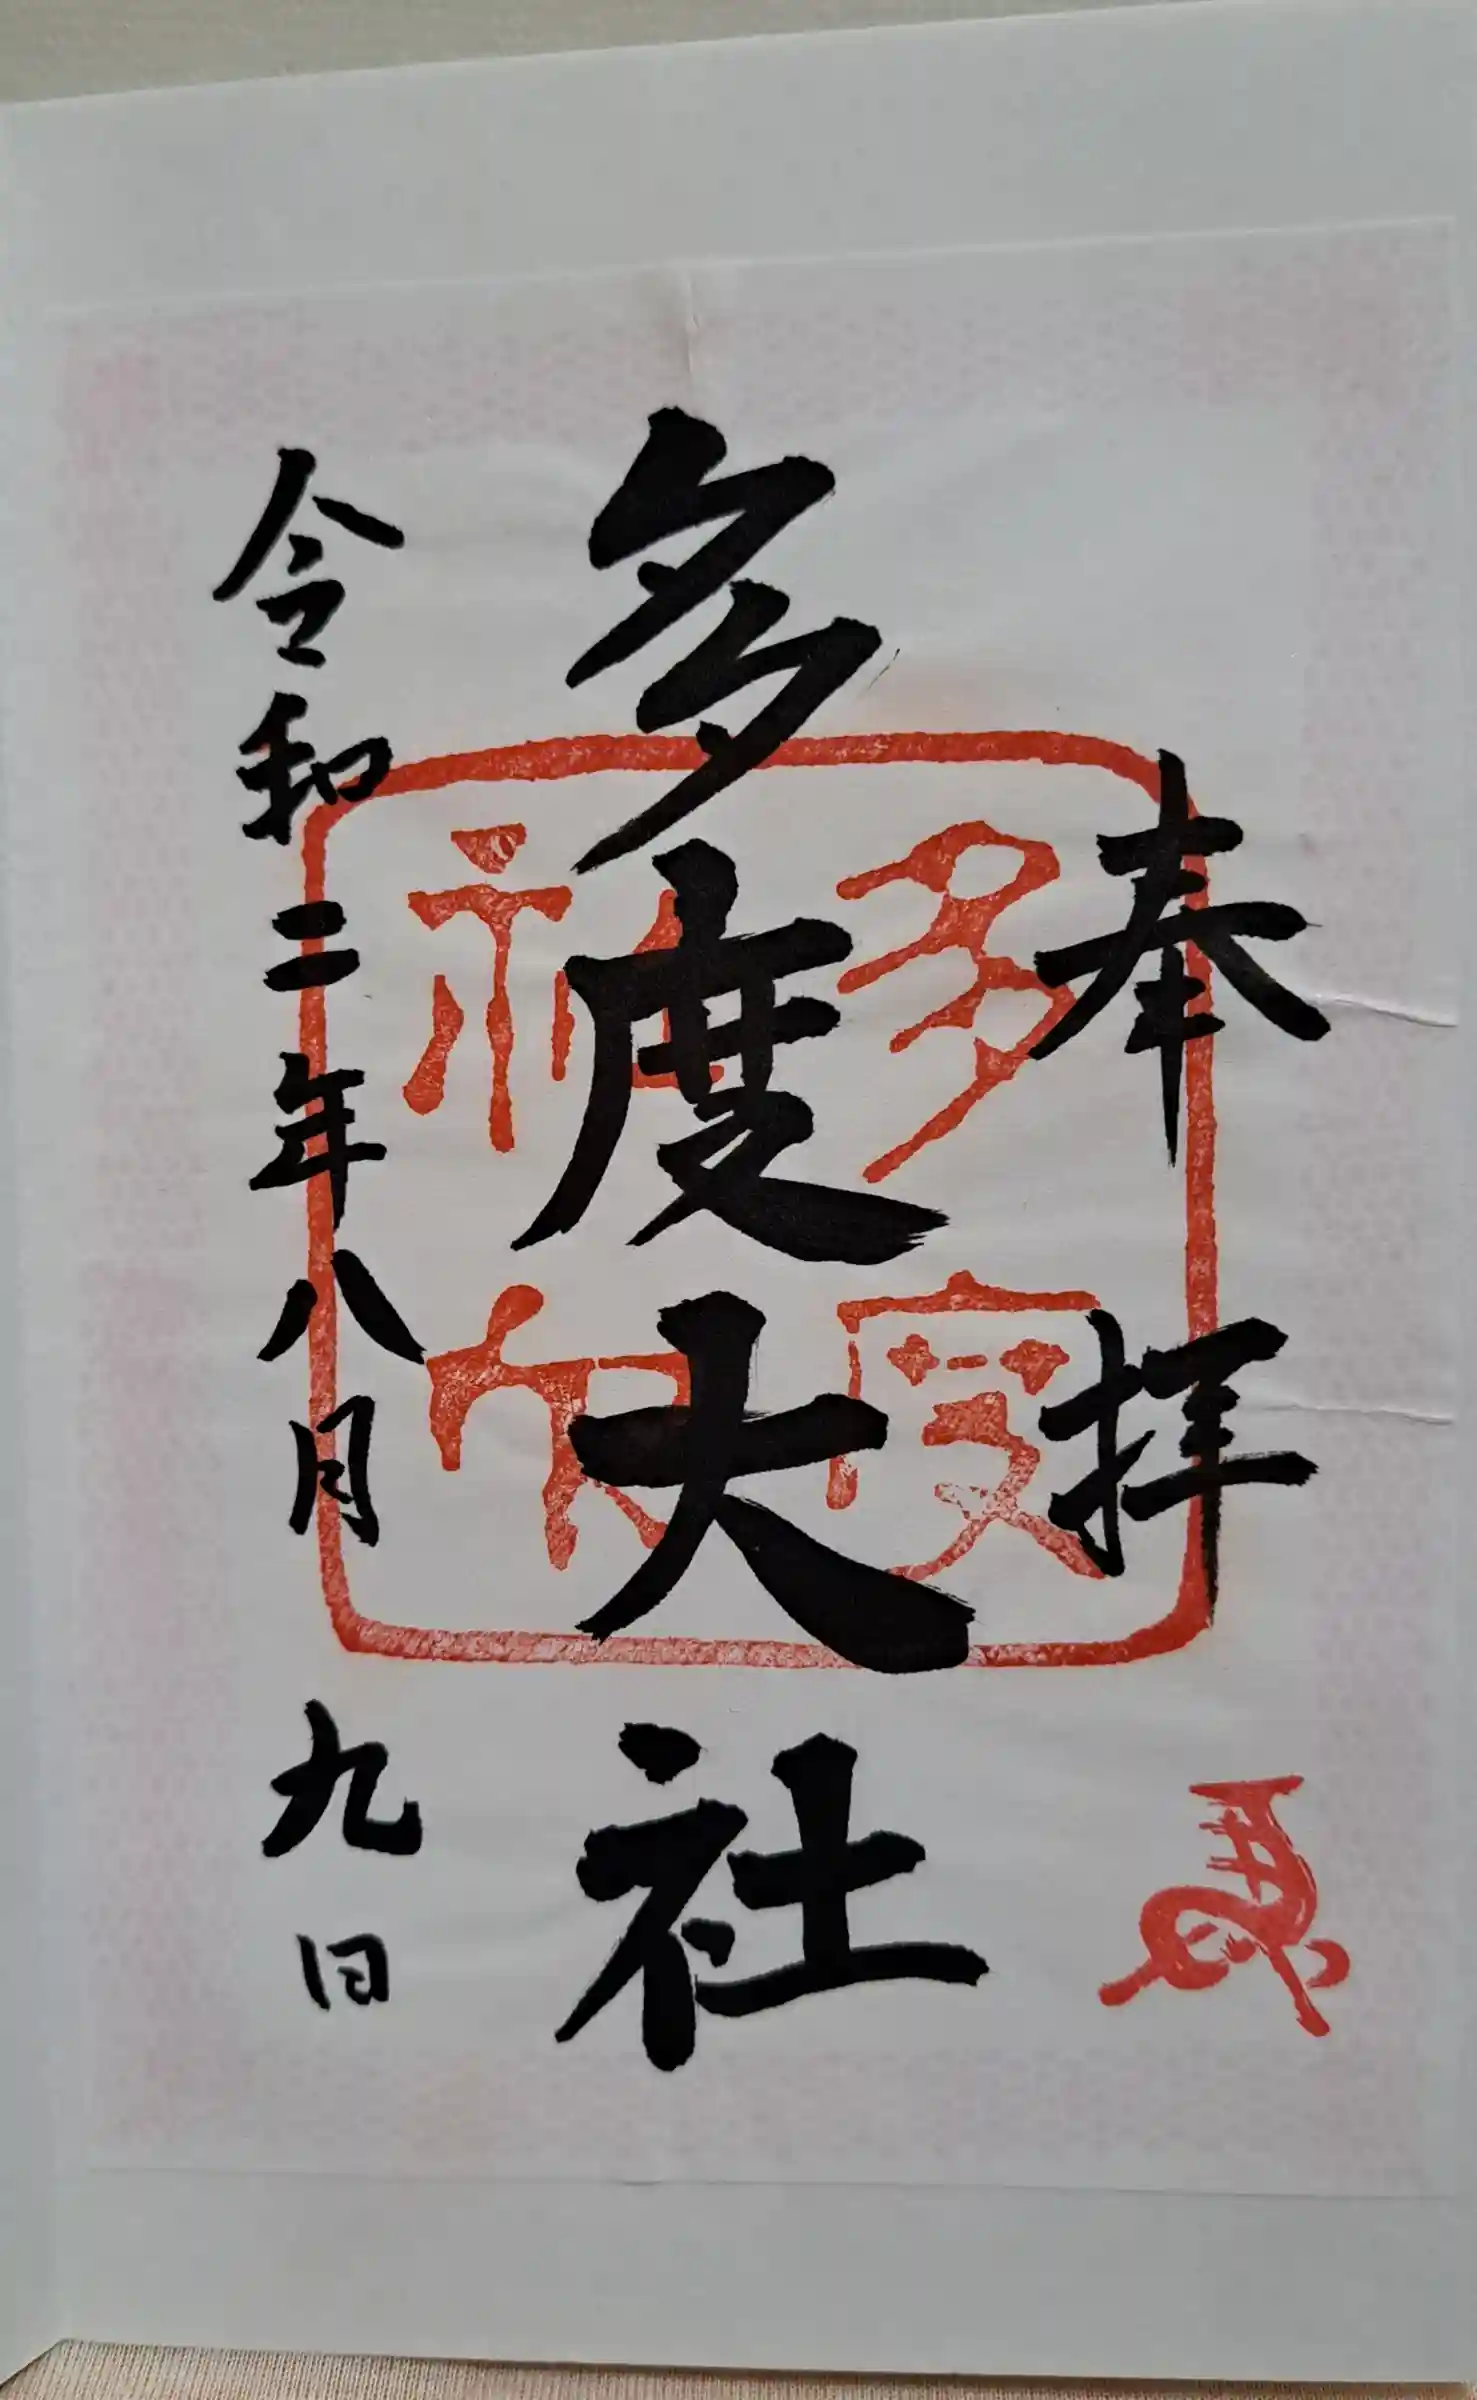 奉拝
多度大社
令和二年八月九日
多度
神社